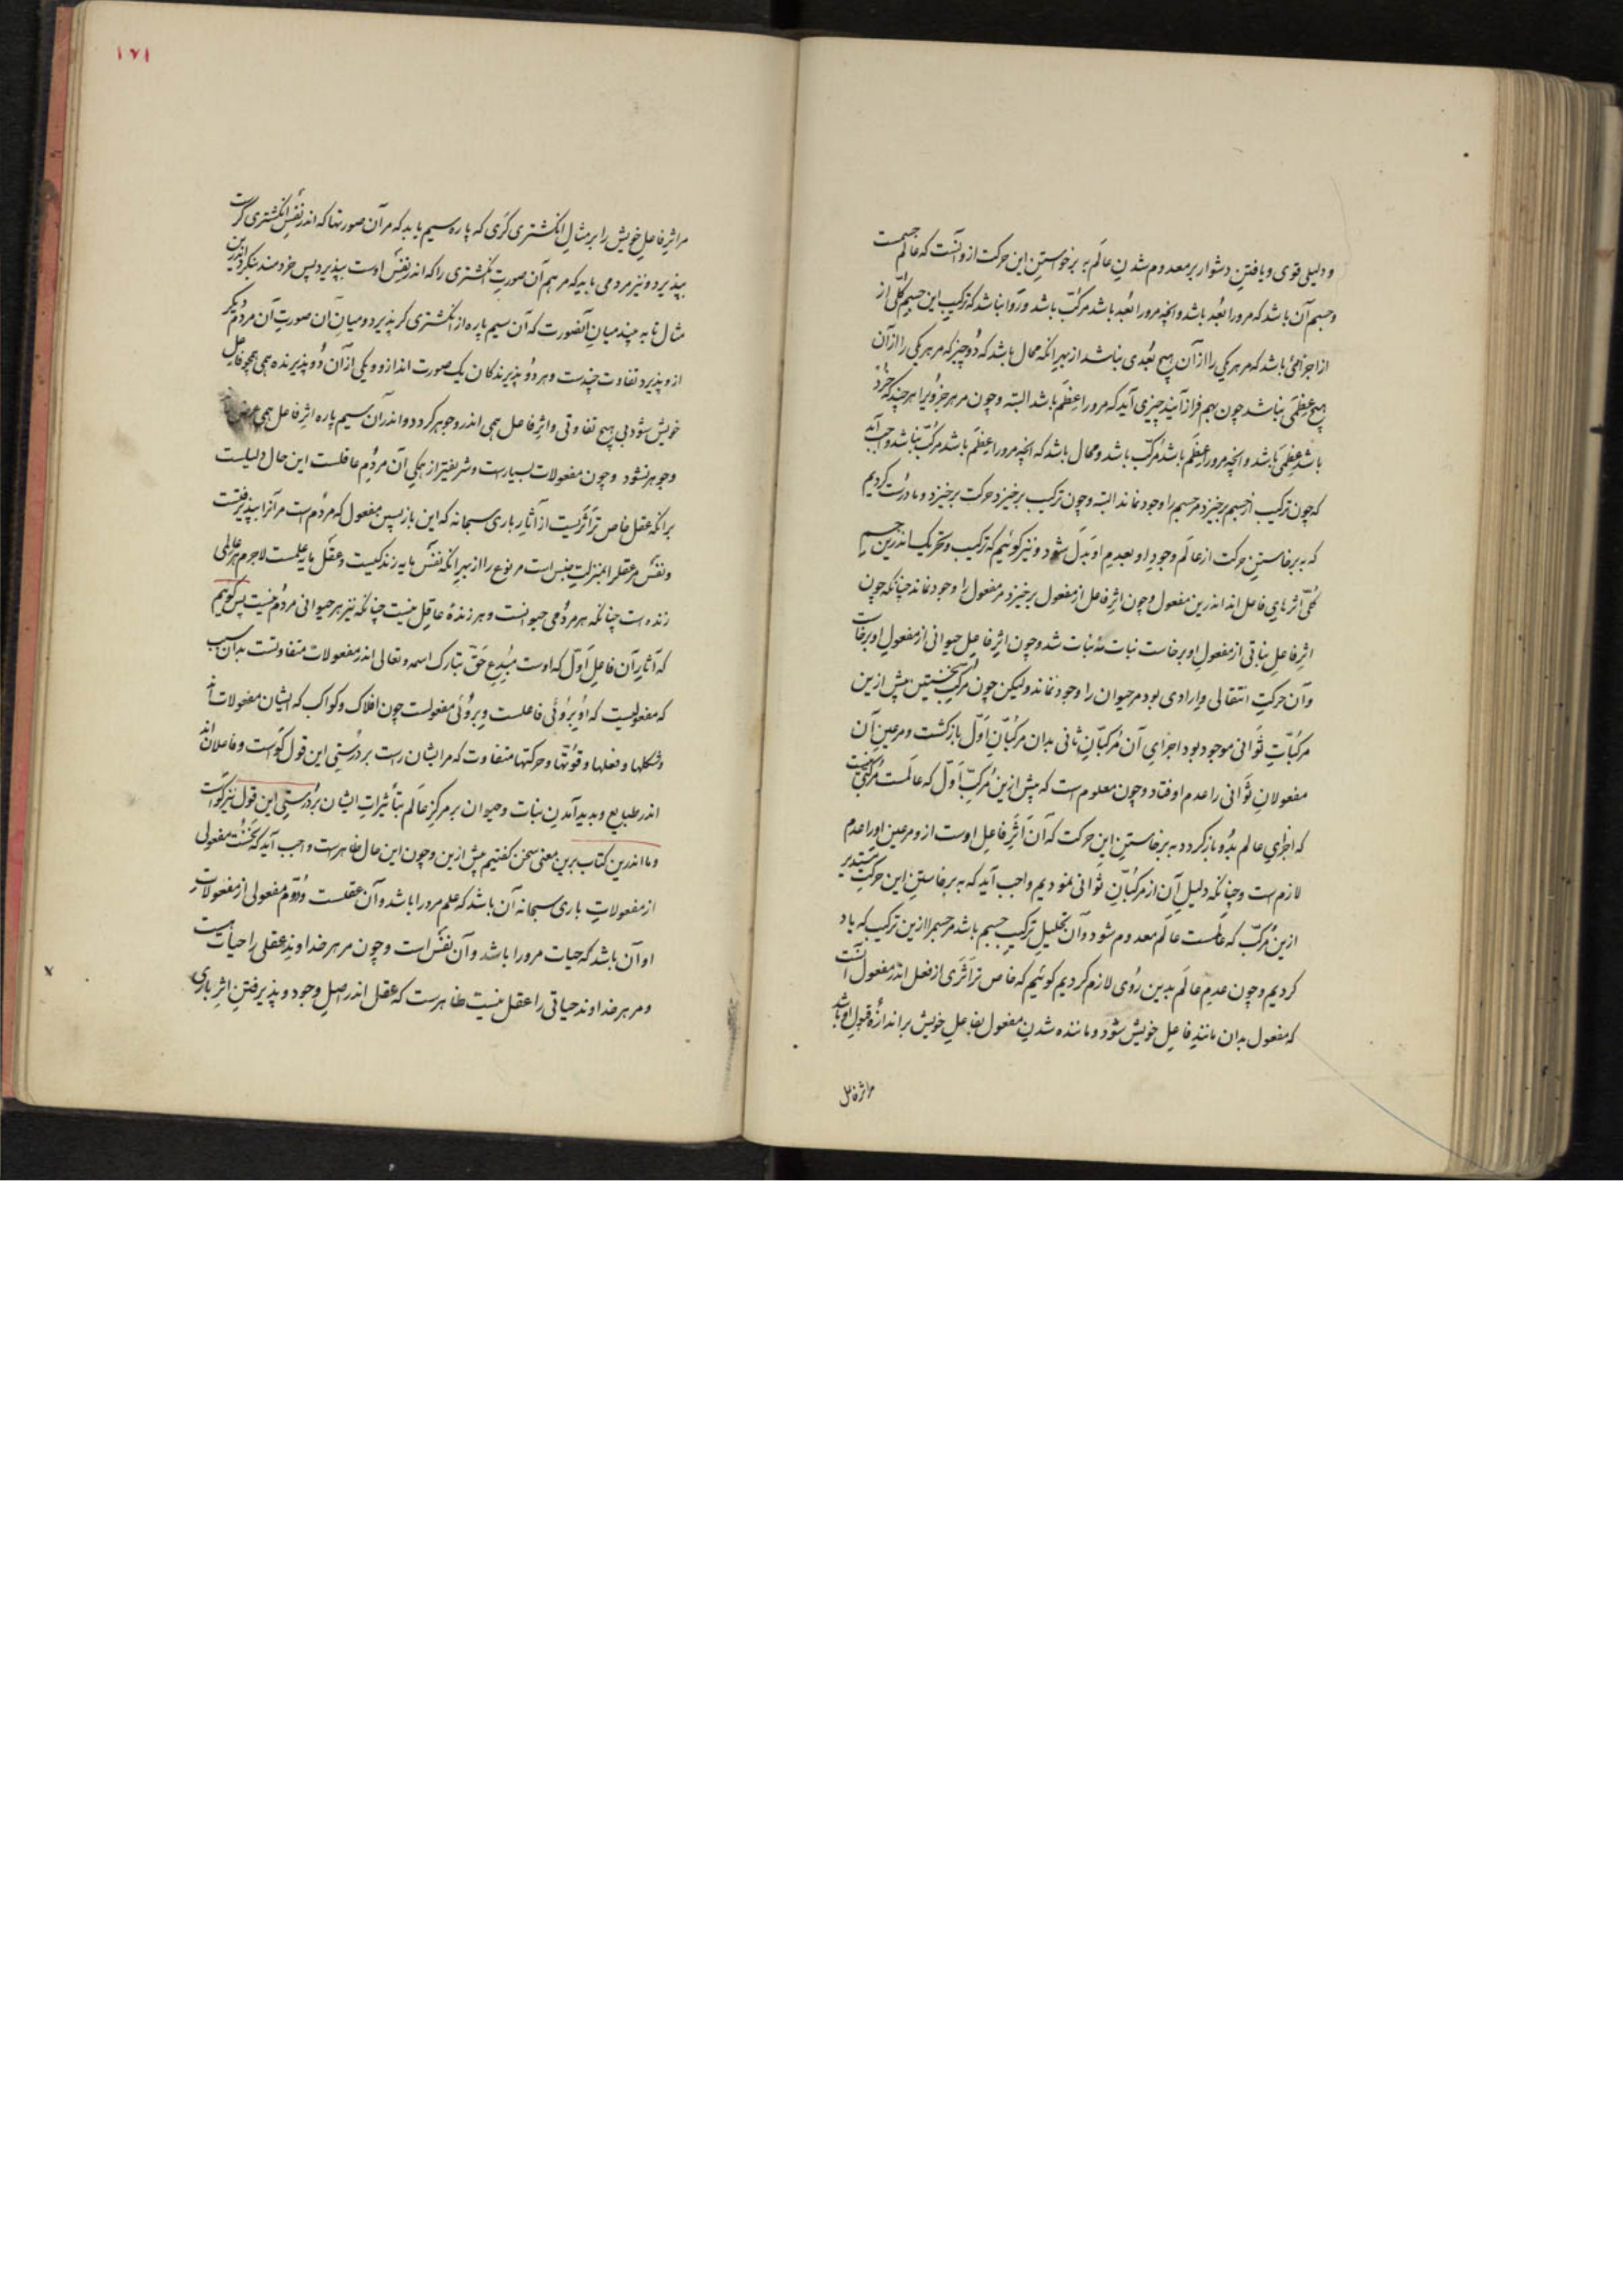 ودلیلی قوی ویافتن دشوار بر معدوم شدن عالم به برخواستن این حرکت ازو آنست که عالم جسمست
وجسم آن باشد که مرورا بُعد باشد وانچه مرورا بُعد باشد مرکّب باشد وروا نباشد که ترکیب این جسم کلّی از
از اجزائی باشد که مر هر یکی را از آن هیچ بُعدی نباشد از بهر آنکه محال باشد که دو چیز که مر هر یکی را از آن
هیچ عِظَمی نباشد چون بهم فراز آیند چیزی آید که مرورا عِظَم باشد البته وچون مر هر جزوی را هر چند که خُرد
باشد عِظَمی باشد وانچه مرورا عِظَم باشد مرکّب باشد ومحال باشد که انچه مرورا عِظَم باشد مرکّب نباشد واجب آید
که چون ترکیب از جسم برخیزد مر جسم را وجود نماند البته وچون ترکیب برخیزد حرکت برخیزد وما درست کردیم
که به برخاستن حرکت از عالم وجود او بعدم او بَدَل شود ونیز گوئیم که ترکیب وتحریک اندرین جسم
کلّی اثرهای فاعل اند اندرین مفعول وچون اثر فاعل از مفعول برخیزد مر مفعول را وجود نماند چنانکه چون
اثر فاعل نباتی از مفعول او برخاست نبات نه نبات شد وچون اثر فاعل حیوانی از مفعول او برخاست
وآن حرکت انتقالی وارادی بود مر حیوان را وجود نماند ولیکن چون مرکّب نخستین پیش ازین
مرکّبات ثوانی موجود بود اجزای آن مرکّبان ثانی بدان مرکّبان اوّل بازگشت ومر عین آن
مفعولان ثوانی را عدم اوفتاد وچون معلوم است که پیش ازین مرکّب اوّل که عالمست مرکّبی نیست
که اجزای عالم بدو باز گردد به برخاستن این حرکت که آن اثر فاعل اوست ازو مر عین اورا عدم
لازم است وچنانکه دلیل آن از مرکّبان ثوانی نمودیم واجب آید که به برخاستن این حرکت مستدیر
ازین مرکّب که عالمست عالم معدوم شود وآن تحلیل ترکیب جسم باشد مر جسم را ازین ترکیب که یاد
کردیم وچون عدم عالم بدین روی لازم کردیم گوئیم که خاص تر اثری از فعل اندر مفعول آنست
که مفعول بدان مانند فاعل خویش شود وماننده شدن مفعول بفاعل خویش بر اندازهٔ قبول او باشد
مر اثر فاعل
۱۷۱
مر اثر فاعل خویش را بر مثال انگشتری گری که پاره سیم یابد که مر آن صورتها که اندر نفس انگشتری گرست
بپذیرد ونیز مردمی یابد که مر هم آن صورت انگشتری را که اندر نفس اوست بپذیرد پس خردمند بنگرد اندرین
مثال تا به چند میان آن صورت که آن سیم پاره از انگشتری گر پذیرد ومیان آن صورت آن مردم دیگر
ازو پذیرد تفاوت چندست وهر دو پذیرندگان یک صورت اند ازو ویکی از آن دو پذیرنده همی همچو فاعل
خویش شود بی هیچ تفاوتی واثر فاعل همی اندرو جوهر گردد واندر آن سیم پاره اثر فاعل همی عرض
وجوهر نشود وچون مفعولات بسیارست وشریفتر از همگی آن مردم عاقلست این حال دلیلست
برانکه عقل خاص تر اثریست از آثار باری سبحانه که این بازپسین مفعول که مردم است مر آنرا بپذیرفتست
ونفس مر عقل را بمنزلت جنس است مر نوع را از بهر آنکه نفس مایه زندگیست وعقل مایه علمست لاجرم هر عالمی
زنده است چنانکه هر مردمی حیوانست وهر زندهٔ عاقل نیست چنانکه نیز هر حیوانی مردم نیست پس گوئیم
که آثار آن فاعل اوّل که اوست مُبدِع حقّ تبارک اسمه وتعالی اندر مفعولات متفاوتست بدان سبب
که مفعولیست که او بروئی فاعلست وبروئی مفعولست چون افلاک وکواکب که ایشان مفعولات اند
وشکلها وفعلها وقوتها وحرکتها متفاوت که مر ایشان راست بر درستی این قول گواست وفاعلان اند
اندر طبایع وبدید آمدن نبات وحیوان بر مرکز عالم بتأثیرات ایشان بر درستی این قول نیز گواست
وما اندرین کتاب برین معنی سخن گفتیم پیش ازین وچون این حال ظاهرست واجب آید که نخست مفعولی
از مفعولات باری سبحانه آن باشد که علم مرورا باشد وآن عقلست ودوّم مفعولی از مفعولات
او آن باشد که حیات مرورا باشد وآن نفس است وچون مر هر خداوند عقلی را حیات است
ومر هر خداوند حیاتی را عقل نیست ظاهرست که عقل اندر اصل وجود وپذیرفتن اثر باری